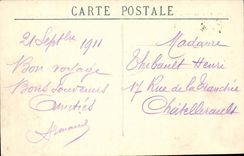 CARTE POSTALE
21 Septbre 1911
Bon voyage
Bons Souvenirs
Amitiés
Armand
Madame
Thibault Henri
17 Rue de la Tranchée
Châtellerault